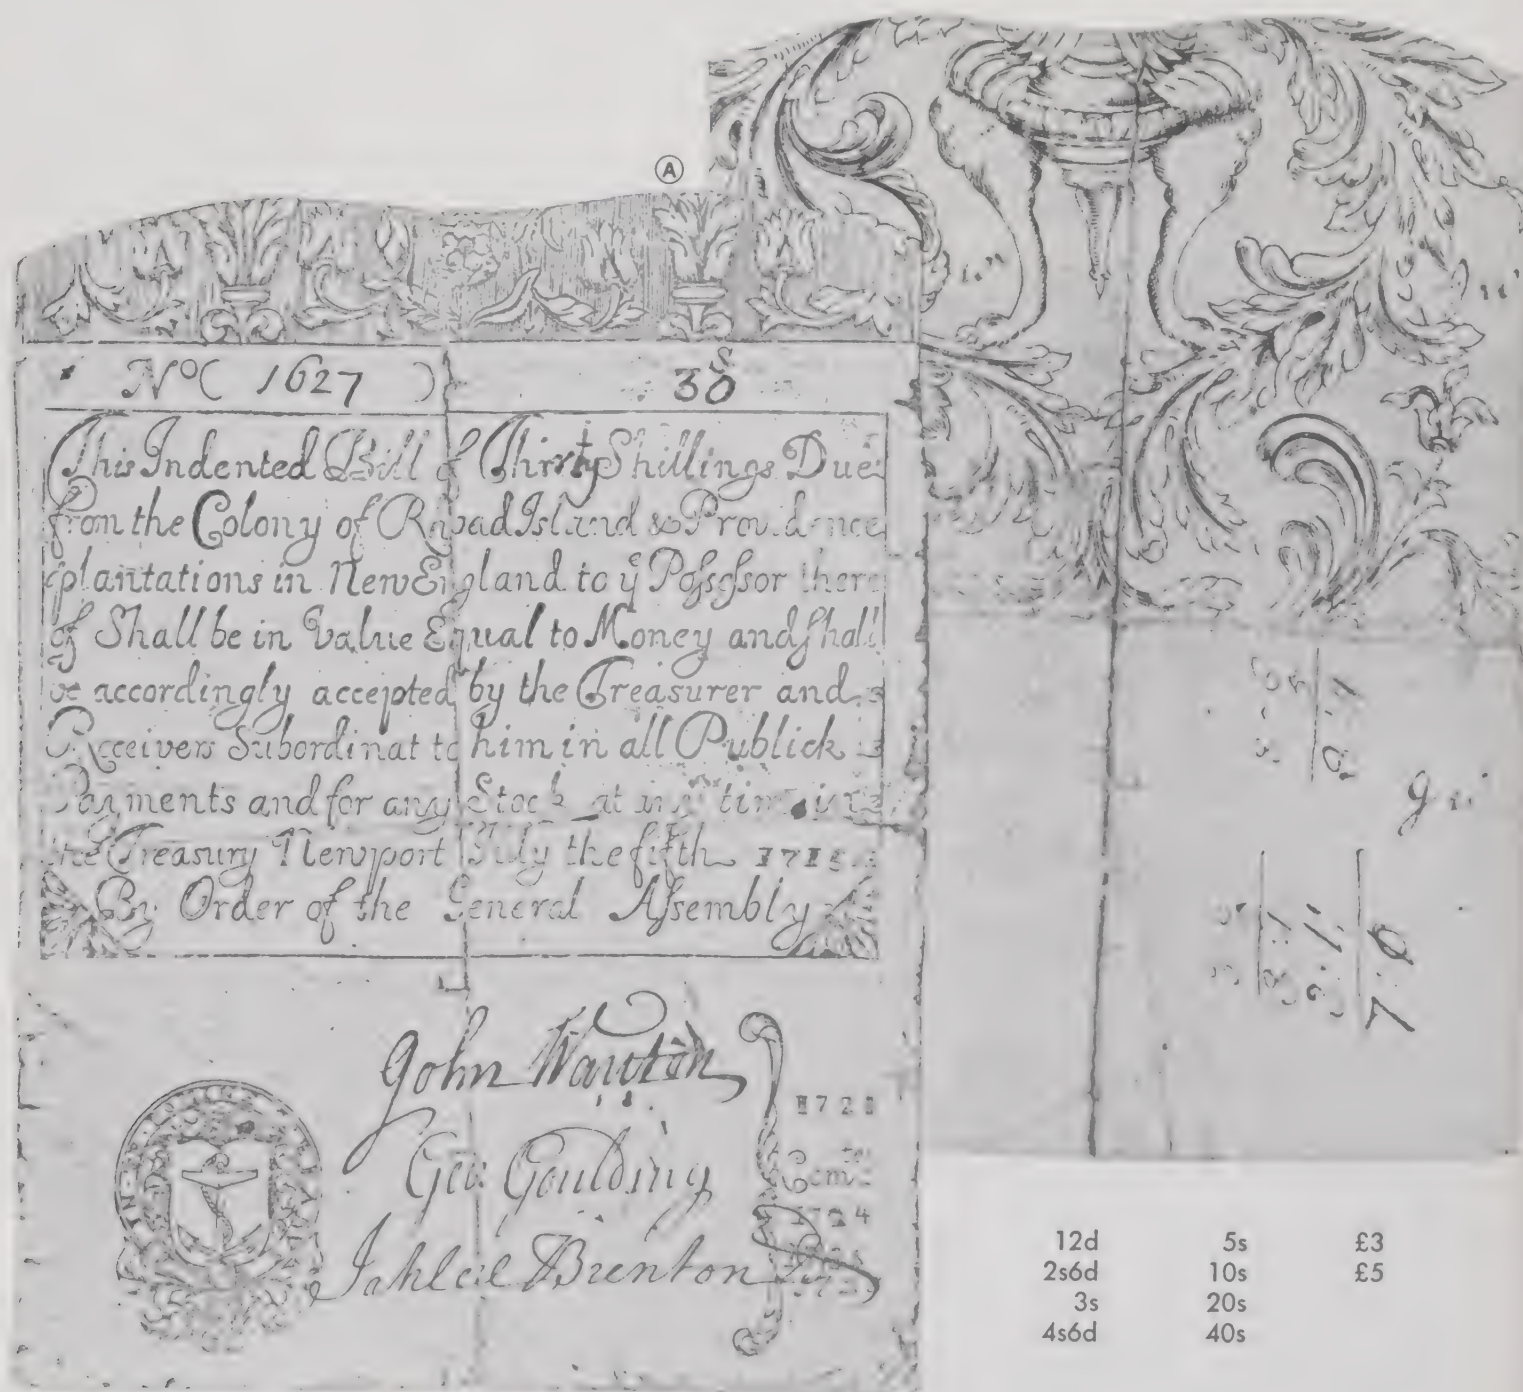 A
No( 1627 ) 30s
This Indented Bill of Thirty Shillings Due
from the Colony of Rhoad Island & Providence
plantations in New England to yͤ Poſseſsor there
of Shall be in Value Equal to Money and ſhall
be accordingly accepted by the Treasurer and
Receivers Subordinat to him in all Publick
Payments and for any Stock at any time in
the Treasury Newport July the fifth 1715
By Order of the General Aſsembly
John Wanton
Geo: Goulding
Jahleel Brenton
1728
Comte
1724
12d 5s £3
2s6d 10s £5
3s 20s
4s6d 40s